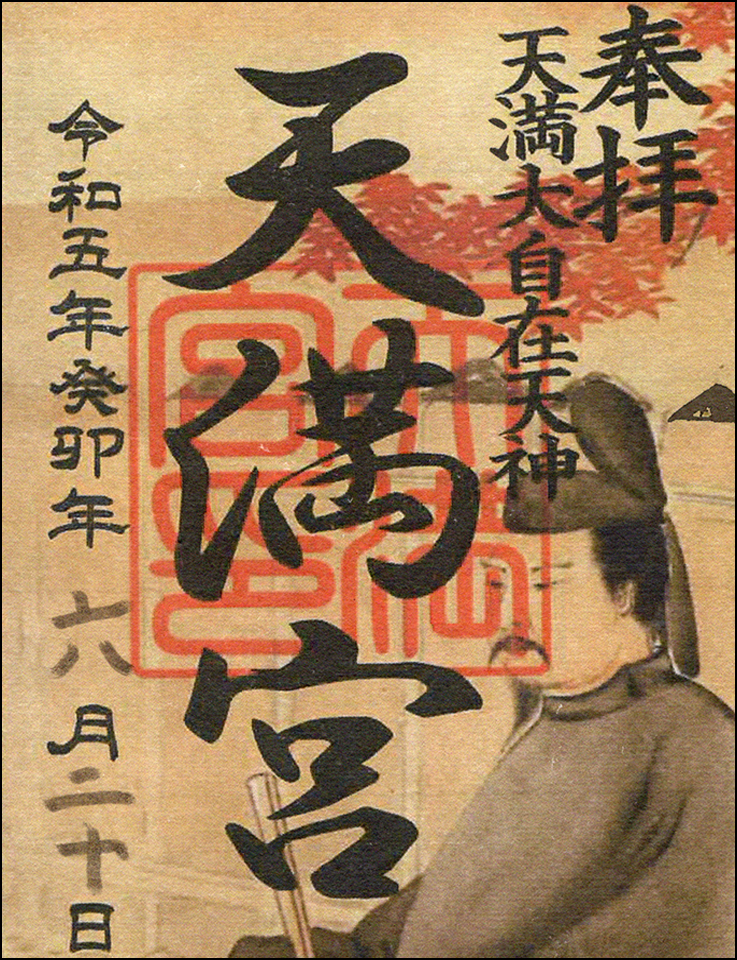 奉拝
天満大自在天神
天満宮
天満宮印
令和五年癸卯年 六月二十日